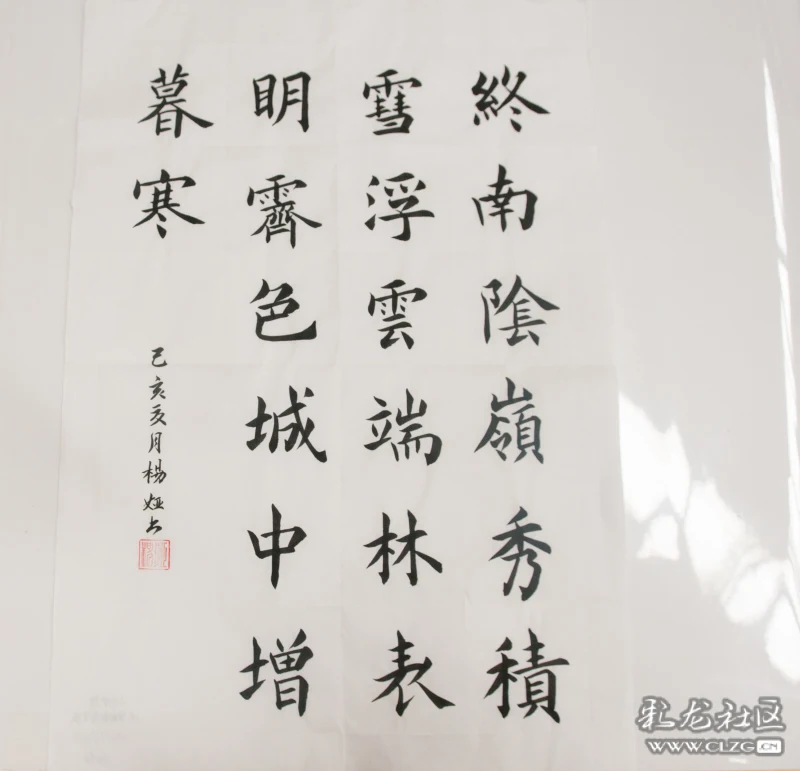 終南陰嶺秀積
雪浮雲端林表
明霽色城中增
暮寒
己亥亥月楊婭书
彩龙社区
WWW.CLZG.CN